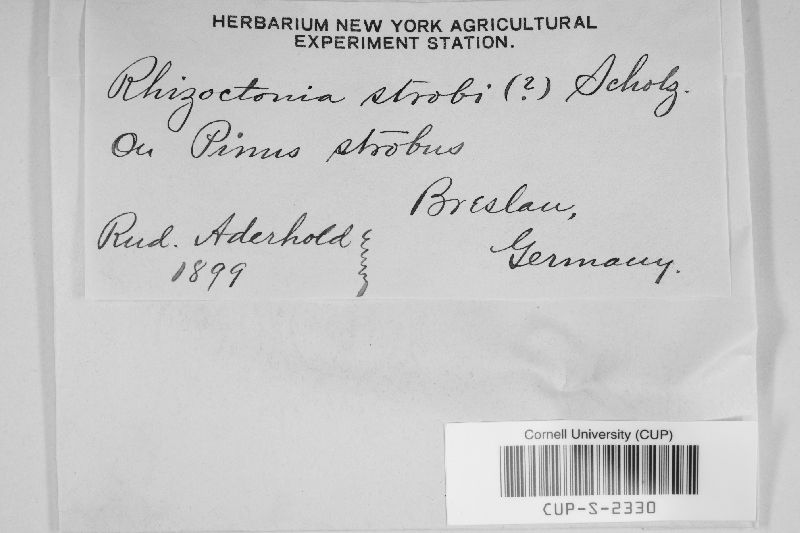 HERBARIUM NEW YORK AGRICULTURAL
EXPERIMENT STATION.
Rhizoctonia strobi (?) Scholz.
On Pinus strobus
Breslau,
Germany.
Rud. Aderhold
1899
Cornell University (CUP)
CUP-S-2330